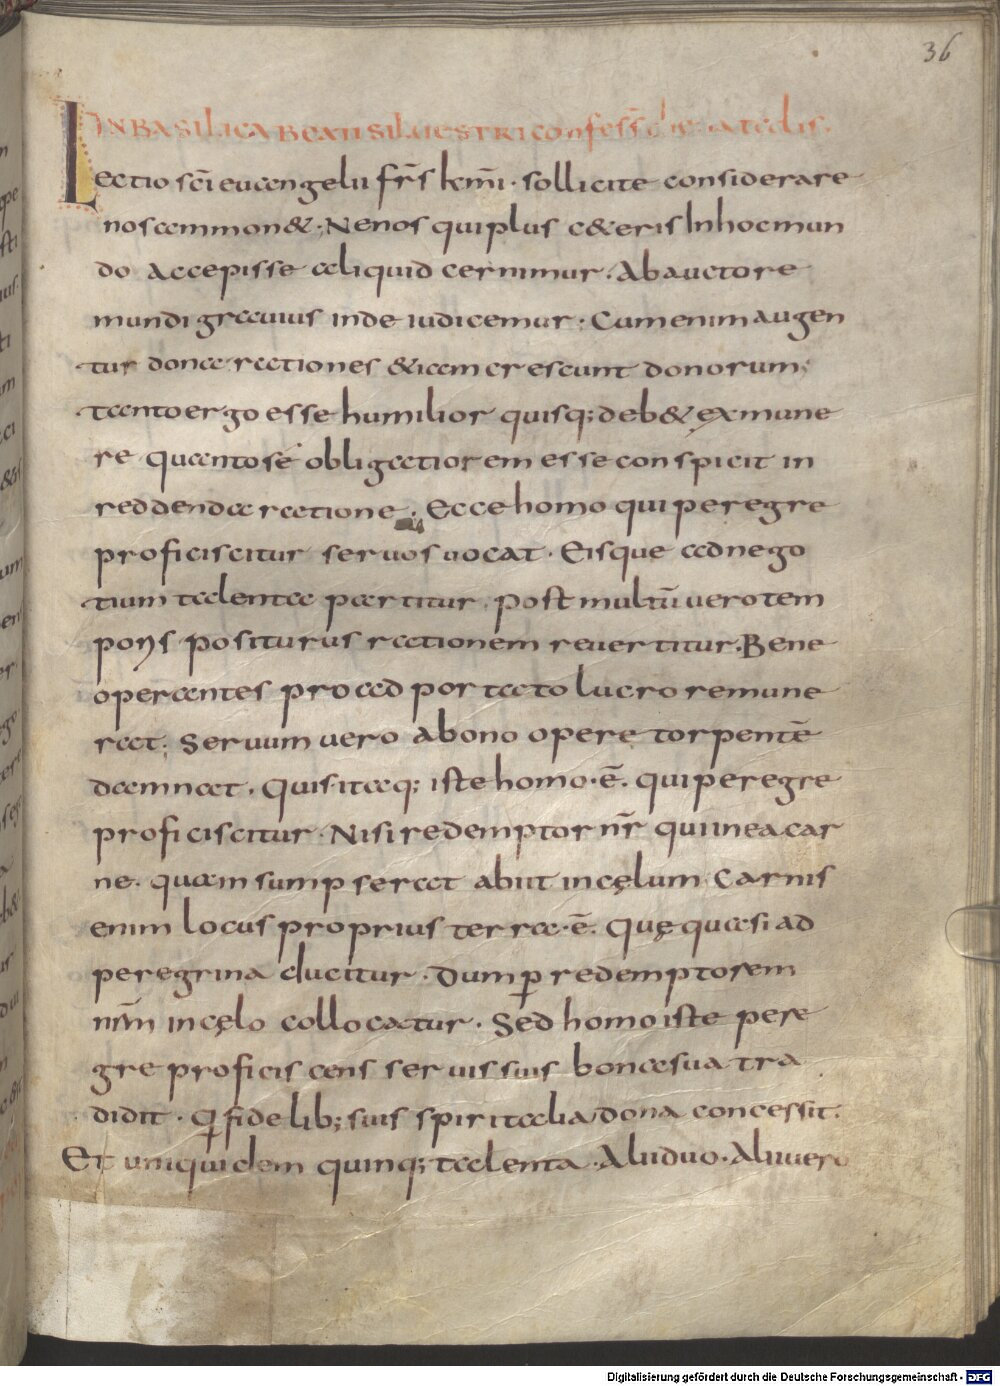 36
IN BASILICA BEATI SILUESTRI confess̄ die natalis.
Lectio sc̄i euangelii fr̄s km̄i · sollicite considerare
nos ammon& · Nenos qui plus c&eris In hoc mun
do accepisse aliquid cernimur · Ab auctore
mundi grauius inde iudicemur · Cum enim augen
tur dona rationes &iam crescunt donorum;
tanto ergo esse humilior quisq; deb& ex mune
re quanto se obligatiorem esse conspicit in
reddenda ratione · Ecce homo qui peregre
proficiscitur seruos uocat · Eisque ad nego
tium talenta partitur · post multū uero tem
poris positurus rationem reuertitur · Bene
operantes pro adportato lucro remune
rat; Seruum uero a bono opere torpentē
damnat · Quis itaq; iste homo · ē · qui peregre
proficiscitur · Nisi redemptor nr̄ qui in ea car
ne · quam sumpserat abiit in cęlum Carnis
enim locus proprius terra · ē · Quę quasi ad
peregrina ducitur · Dum ꝑ redemptorem
nr̄m in cęlo collocatur · Sed homo iste pere
gre proficiscens seruis suis bona sua tra
didit · Q fidelib; suis spiritalia dona concessit ·
Et uni quidem quinq; talenta · Alii duo · Alii uero
Digitalisierung gefördert durch die Deutsche Forschungsgemeinschaft - DFG